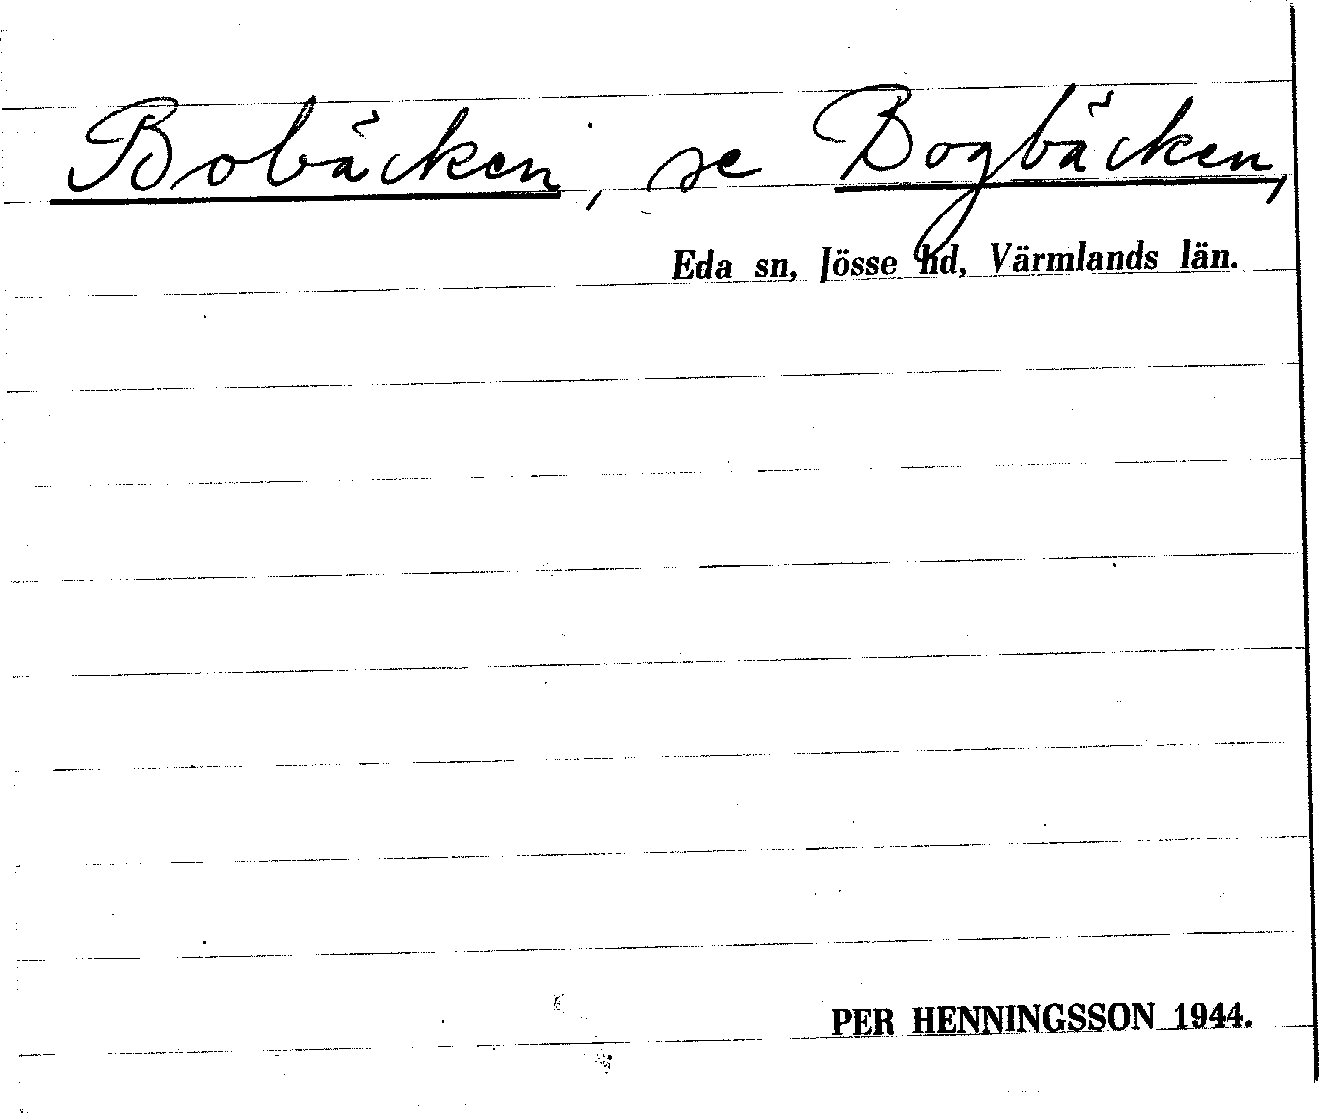 Bobäcken, se Bogbäcken,
Eda sn, Jösse hd, Värmlands län.
PER HENNINGSSON 1944.